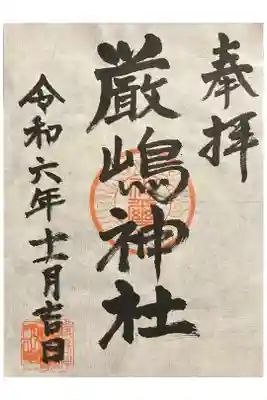 奉拝
厳嶋神社
令和六年十一月吉日